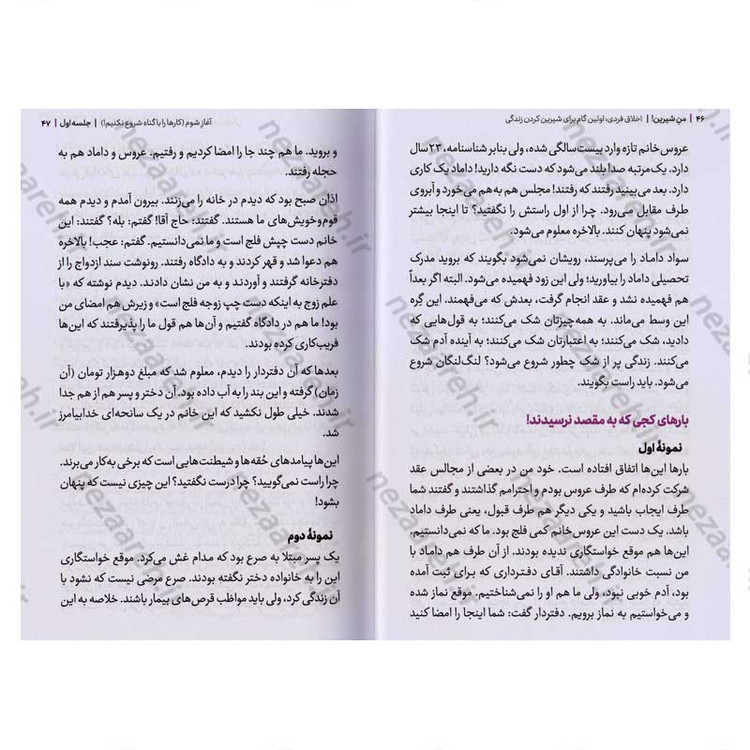 ۴۶ | منِ شیرین! | اخلاق فردی، اولین گام برای شیرین کردن زندگی
عروس‌خانم تازه وارد بیست‌سالگی شده، ولی بنابر شناسنامه، ۲۳سال
دارد. یک‌مرتبه صدا بلند می‌شود که دست نگه دارید! داماد یک کاری
دارد. بعد می‌بینید رفتند که رفتند! مجلس هم به‌هم می‌خورد و آبروی
طرف مقابل می‌رود. چرا از اول راستش را نگفتید؟ تا اینجا بیشتر
نمی‌شود پنهان کنند. بالاخره معلوم می‌شود.
سواد داماد را می‌پرسند، رویشان نمی‌شود بگویند که بروید مدرک
تحصیلی داماد را بیاورید؛ ولی این زود فهمیده می‌شود. البته اگر بعداً
هم فهمیده نشد و عقد انجام گرفت، بعدش که می‌فهمند. این گره
این وسط می‌ماند. به همه‌چیزتان شک می‌کنند؛ به قول‌هایی که
دادید، شک می‌کنند؛ به اعتبارتان شک می‌کنند؛ به آینده آدم شک
می‌کنند. زندگی پر از شک چطور شروع می‌شود؟ لنگ‌لنگان شروع
می‌شود. باید راست بگویند.
بارهای کجی که به مقصد نرسیدند!
نمونهٔ اول
بارها این‌ها اتفاق افتاده است. خود من در بعضی از مجالس عقد
شرکت کرده‌ام که طرف عروس بودم و احترامم گذاشتند و گفتند شما
طرف ایجاب باشید و یکی دیگر هم طرف قبول، یعنی طرف داماد
باشد. یک دست این عروس خانم کمی فلج بود. ما که نمی‌دانستیم.
این‌ها هم موقع خواستگاری ندیده بودند. از آن طرف هم داماد با
من نسبت خانوادگی داشتند. آقای دفترداری که برای ثبت آمده
بود، آدم خوبی نبود، ولی ما هم او را نمی‌شناختیم. موقع نماز شده
و می‌خواستیم به نماز برویم. دفتردار گفت: شما اینجا را امضا کنید
آغاز شوم (کارها را با گناه شروع نکنیم!) | جلسه اول | ۴۷
و بروید. ما هم چند جا را امضا کردیم و رفتیم. عروس و داماد هم به
حجله رفتند.
اذان صبح بود که دیدم در خانه را می‌زنند. بیرون آمدم و دیدم همه
قوم‌وخویش‌های ما هستند. گفتند: حاج آقا! گفتم: بله؟ گفتند: این
خانم دست چپش فلج است و ما نمی‌دانستیم. گفتم: عجب! بالاخره
هم دعوا شد و قهر کردند و به دادگاه رفتند. رونوشت سند ازدواج را از
دفترخانه گرفتند و آوردند و به من نشان دادند. دیدم نوشته که «با
علم زوج به اینکه دست چپ زوجه فلج است» و زیرش هم امضای من
بود! ما هم در دادگاه گفتیم و آن‌ها هم قول ما را پذیرفتند که این‌ها
فریب‌کاری کرده بودند.
بعدها که آن دفتردار را دیدم، معلوم شد که مبلغ دوهزار تومان (آن
زمان) گرفته و این بند را به آب داده بود. آن دختر و پسر هم از هم جدا
شدند. خیلی طول نکشید که این خانم در یک سانحه‌ای خدابیامرز
شد.
این‌ها پیامدهای حُقه‌ها و شیطنت‌هایی است که برخی به‌کار می‌برند.
چرا راست نمی‌گویید؟ چرا درست نگفتید؟ این چیزی نیست که پنهان
بشود!
نمونهٔ دوم
یک پسر مبتلا به صرع بود که مدام غش می‌کرد. موقع خواستگاری
این را به خانواده دختر نگفته بودند. صرع مرضی نیست که نشود با
آن زندگی کرد، ولی باید مواظب قرص‌های بیمار باشند. خلاصه به این
nezaareh.ir